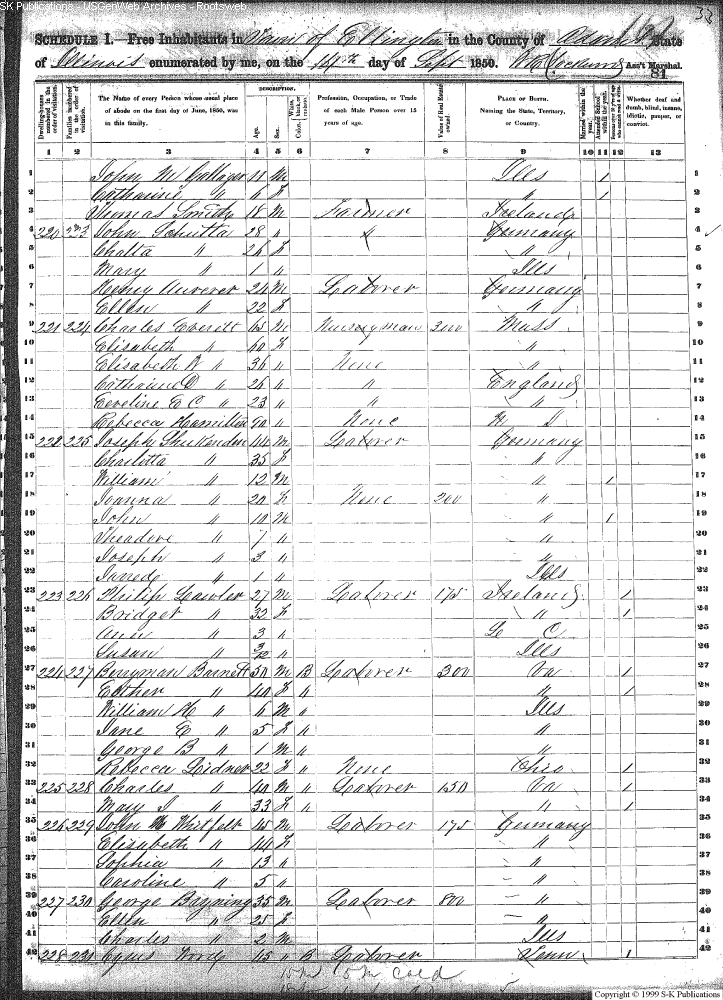 SK Publications - USGenWeb Archives - Rootsweb
33
SCHEDULE I.—Free Inhabitants in Town of Ellington in the County of Adams State
of Illinois enumerated by me, on the 14th day of Sept 1850. Ass't Marshal.
81
Dwelling-houses numbered in the order of visitation.
Families numbered in the order of visitation.
The Name of every Person whose usual place of abode on the first day of June, 1850, was in this family.
DESCRIPTION.
Age.
Sex.
White, black, or mulatto.
Color.
Profession, Occupation, or Trade of each Male Person over 15 years of age.
Value of Real Estate owned.
PLACE OF BIRTH. Naming the State, Territory, or Country.
Married within the year.
Attended School within the year.
Persons over 20 y'rs of age who cannot read & write.
Whether deaf and dumb, blind, insane, idiotic, pauper, or convict.
1 2 3 4 5 6 7 8 9 10 11 12 13
1 John M Gallager 11 M Ills 1 1
2 Catharine " 6 F " 1 2
3 Thomas Smith 18 M Farmer Ireland 3
4 220 223 John Schutta 28 " " Germany 4
5 Chalta " 26 F " 5
6 Mary " 1 " Ills 6
7 Henry 24 M Laborer Germany 7
8 Ellen " 22 F " 8
9 221 224 Charles Everett 65 M Nurseyman 3000 Mass 9
10 Elisabeth " 60 F " 10
11 Elisabeth W " 36 " None " 11
12 Catharine D " 26 " " England 12
13 Eveline E C " 23 " " " 13
14 Rebecca Hamilton 70 " None 14
15 222 225 Joseph 44 M Laborer Germany 15
16 Charlotta " 35 F " 16
17 William " 12 M " 1 17
18 Joanna " 20 F None 200 " 18
19 John " 10 M " 1 19
20 Theadore " 7 " " 20
21 Joseph " 3 " " 21
22 " 1 " Ills 22
23 223 226 Philip Lawler 27 M Laborer 175 Ireland 1 23
24 Bridget " 32 F " 1 24
25 Ann " 3 " C 25
26 Susan " 3/12 " Ills 26
27 224 227 Berryman Barnett 50 M B Laborer 300 Va 1 27
28 Esther " 40 F " " 1 28
29 William H " 6 M " Ills 29
30 Jane E " 5 F " " 30
31 George B " 1 M " " 31
32 Rebecca Lidner 22 F " None Ohio 1 32
33 225 228 Charles " 40 M " Laborer 150 Va 1 33
34 Mary J " 33 F " " 1 34
35 226 229 John H Whitfelt 45 M Laborer 175 Germany 35
36 Elisabeth " 44 F " 36
37 Sophia " 13 " " 37
38 Caroline " 5 " " 38
39 227 230 George Bayning 35 M Laborer 800 " 39
40 Ellen " 25 F " 40
41 Charles " 2 M Ills 41
42 228 231 Cyrus 45 " B Laborer Tenn 1 42
Cold
Copyright © 1999 S-K Publications